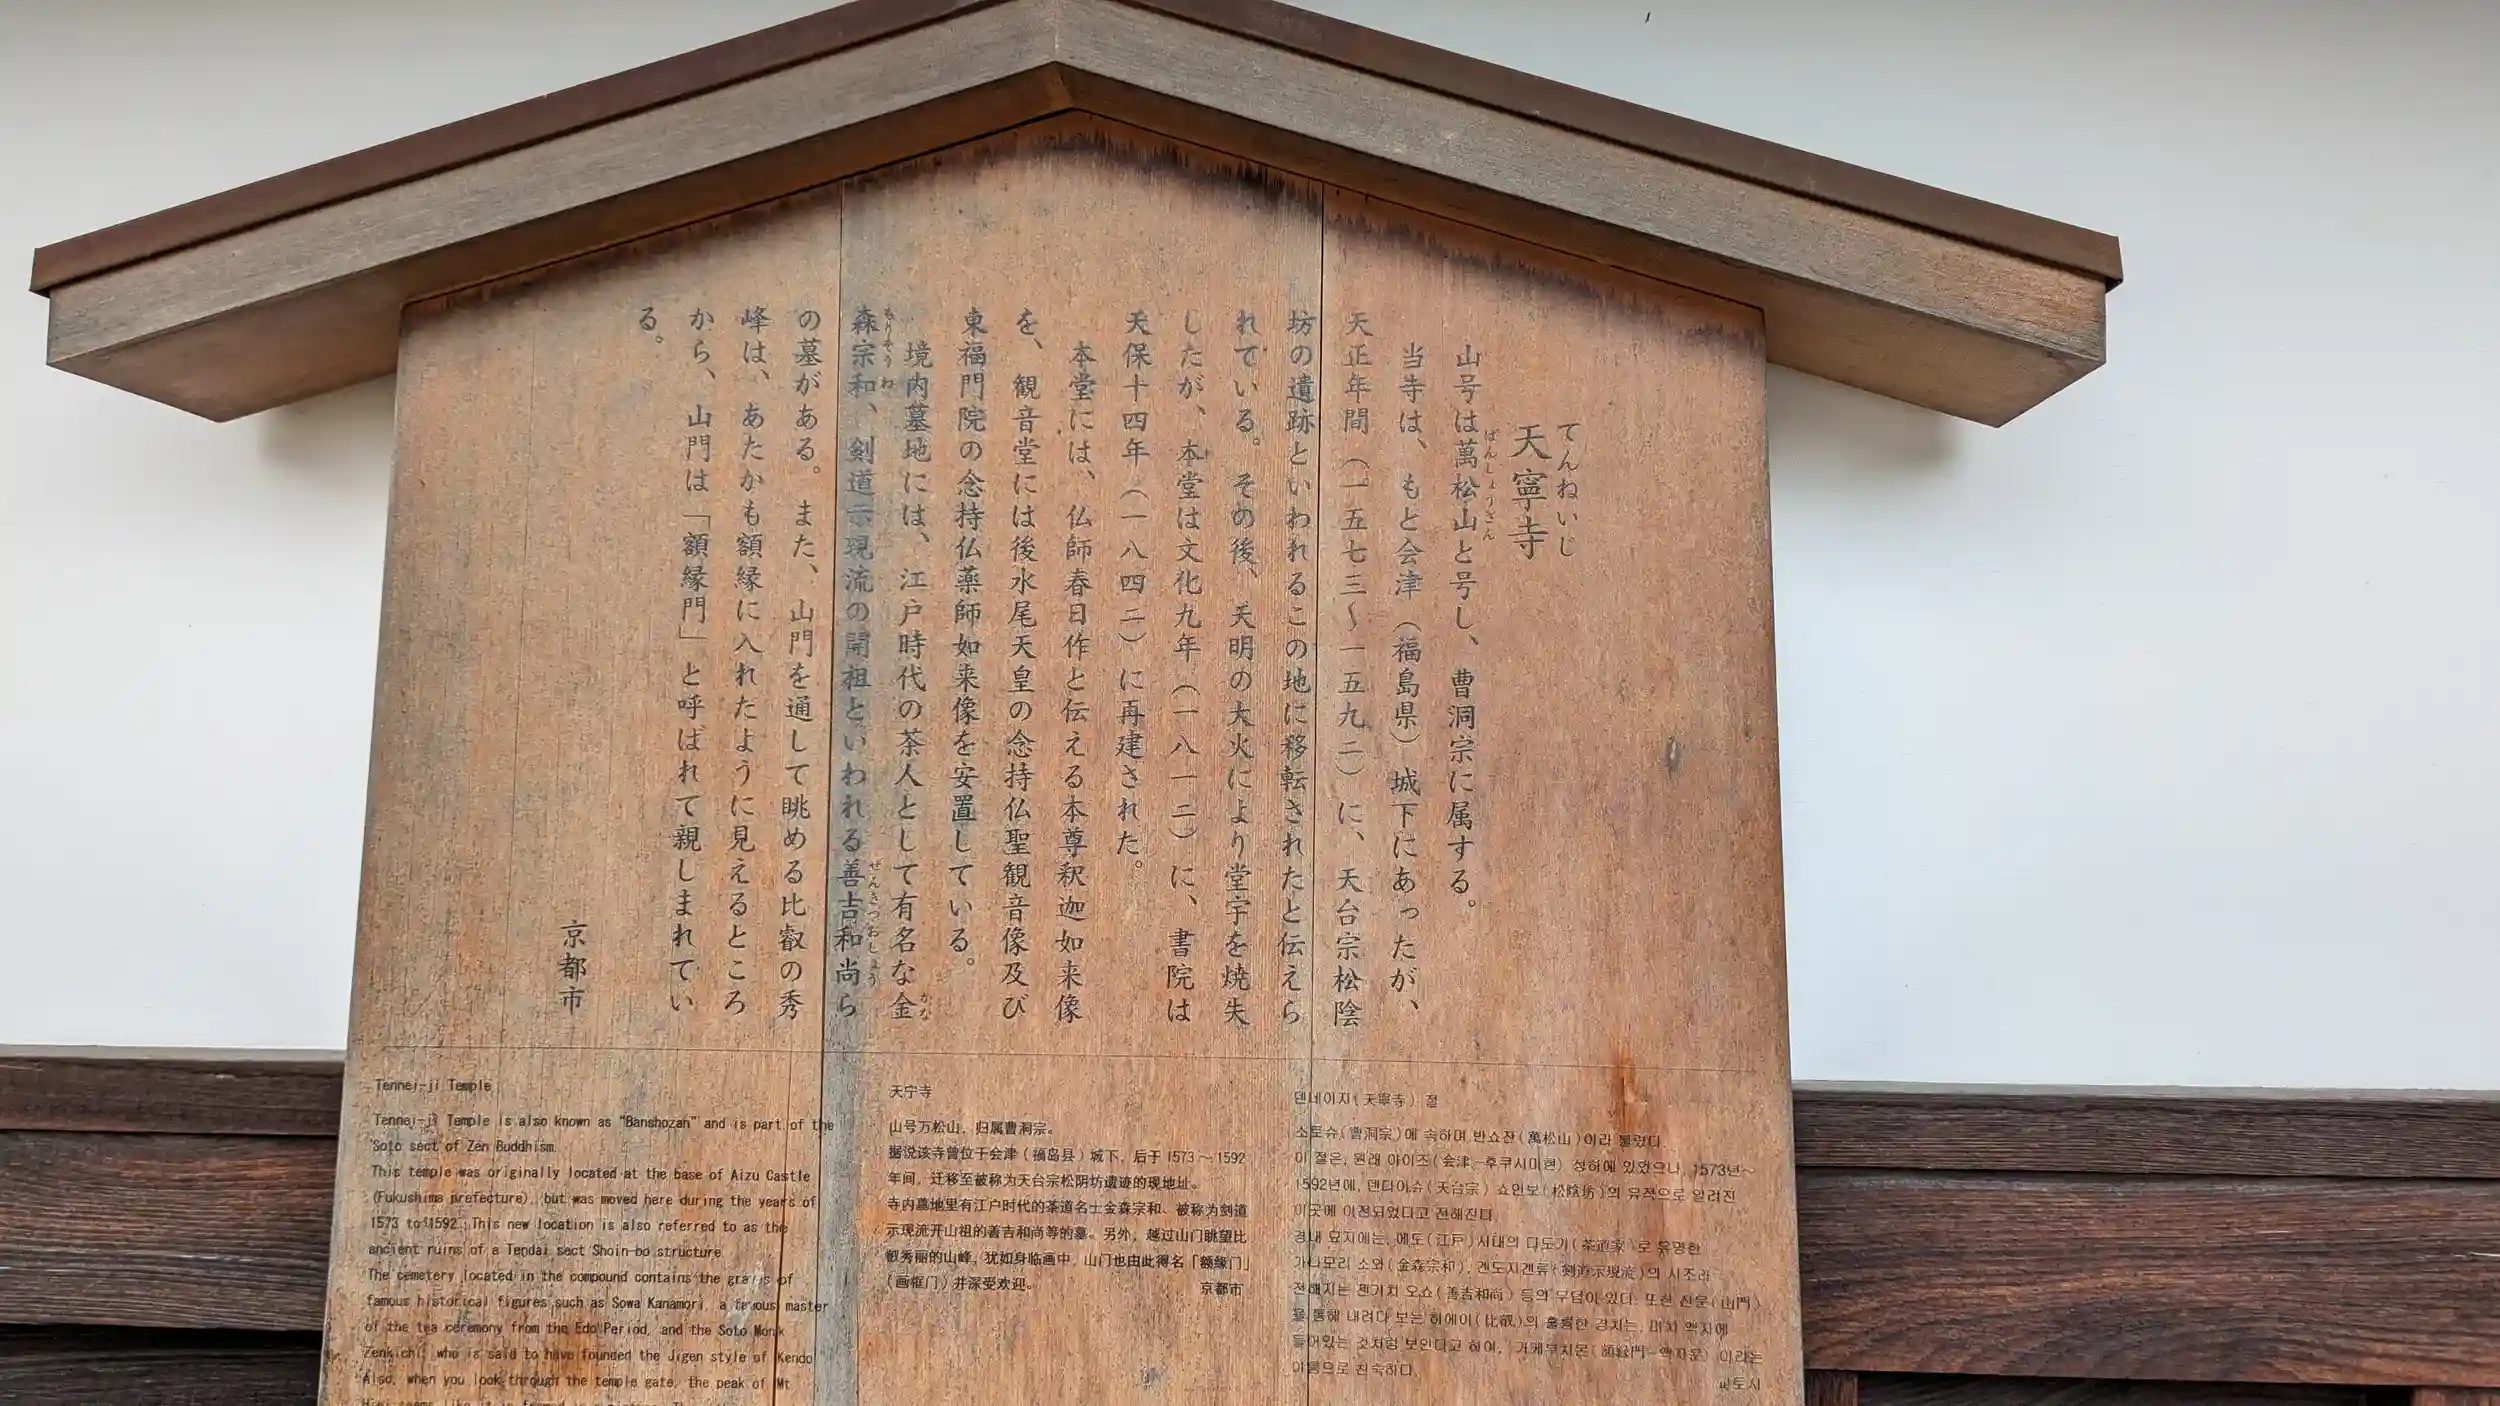 てんねいじ
天寧寺
ばんしょうざん
山号は萬松山と号し、曹洞宗に属する。
当寺は、もと会津（福島県）城下にあったが、
天正年間（一五七三〜一五九二）に、天台宗松陰
坊の遺跡といわれるこの地に移転されたと伝えら
れている。その後、天明の大火により堂宇を焼失
したが、本堂は文化九年（一八一二）に、書院は
天保十四年（一八四二）に再建された。
本堂には、仏師春日作と伝える本尊釈迦如来像
を、観音堂には後水尾天皇の念持仏聖観音像及び
東福門院の念持仏薬師如来像を安置している。
かな
境内墓地には、江戸時代の茶人として有名な金
もりそうわ ぜんきつおしょう
森宗和、剣道示現流の開祖といわれる善吉和尚ら
の墓がある。また、山門を通して眺める比叡の秀
峰は、あたかも額縁に入れたように見えるところ
から、山門は「額縁門」と呼ばれて親しまれてい
る。
京都市
Tennei-ji Temple
Tennei-ji Temple is also known as "Banshozan" and is part of the
Soto sect of Zen Buddhism.
This temple was originally located at the base of Aizu Castle
(Fukushima prefecture), but was moved here during the years of
1573 to 1592. This new location is also referred to as the
ancient ruins of a Tendai sect Shoin-bo structure.
The cemetery located in the compound contains the graves of
famous historical figures such as Sowa Kanamori, a famous master
of the tea ceremony from the Edo Period, and the Soto Monk
Zenkichi, who is said to have founded the Jigen style of Kendo
Also, when you look through the temple gate, the peak of Mt
天宁寺
山号万松山，归属曹洞宗。
据说该寺曾位于会津（福岛县）城下，后于1573～1592
年间，迁移至被称为天台宗松阴坊遗迹的现地址。
寺内墓地里有江户时代的茶道名士金森宗和、被称为剑道
示现流开山祖的善吉和尚等的墓。另外，越过山门眺望比
叡秀丽的山峰，犹如身临画中，山门也由此得名「额缘门」
（画框门）并深受欢迎。
京都市
덴네이지(天寧寺) 절
소토슈(曹洞宗)에 속하며 반쇼잔(萬松山)이라 불렸다.
이 절은, 원래 아이즈(会津-후쿠시마현) 성하에 있었으나, 1573년~
1592년에, 덴다이슈(天台宗) 쇼인보(松陰坊)의 유적으로 알려진
이곳에 이전되었다고 전해진다.
경내 묘지에는, 에도(江戸)시대의 다도가(茶道家)로 유명한
가나모리 소와(金森宗和), 겐도지겐류(剣道示現流)의 시조라
전해지는 젠기치 오쇼(善吉和尚) 등의 무덤이 있다. 또한 산문(山門)
을 통해 내려다 보는 히에이(比叡)의 훌륭한 경치는, 마치 액자에
들어있는 것처럼 보인다고 하여, 가케부치몬(額縁門-액자문) 이라는
이름으로 친숙하다.
교토시